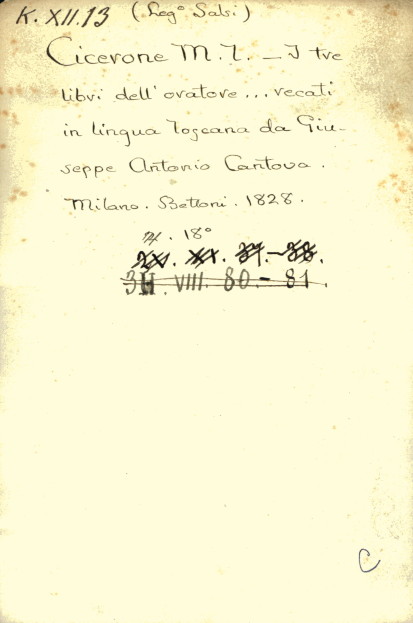 K. XII. 13 (Leg° Salvi)
Cicerone M. T. — I tre
libri dell'oratore... recati
in lingua Toscana da Giu-
seppe Antonio Cantova.
Milano. Bettoni. 1828.
18°
XX. 37.-38.
3H. VIII. 80.- 81.
C